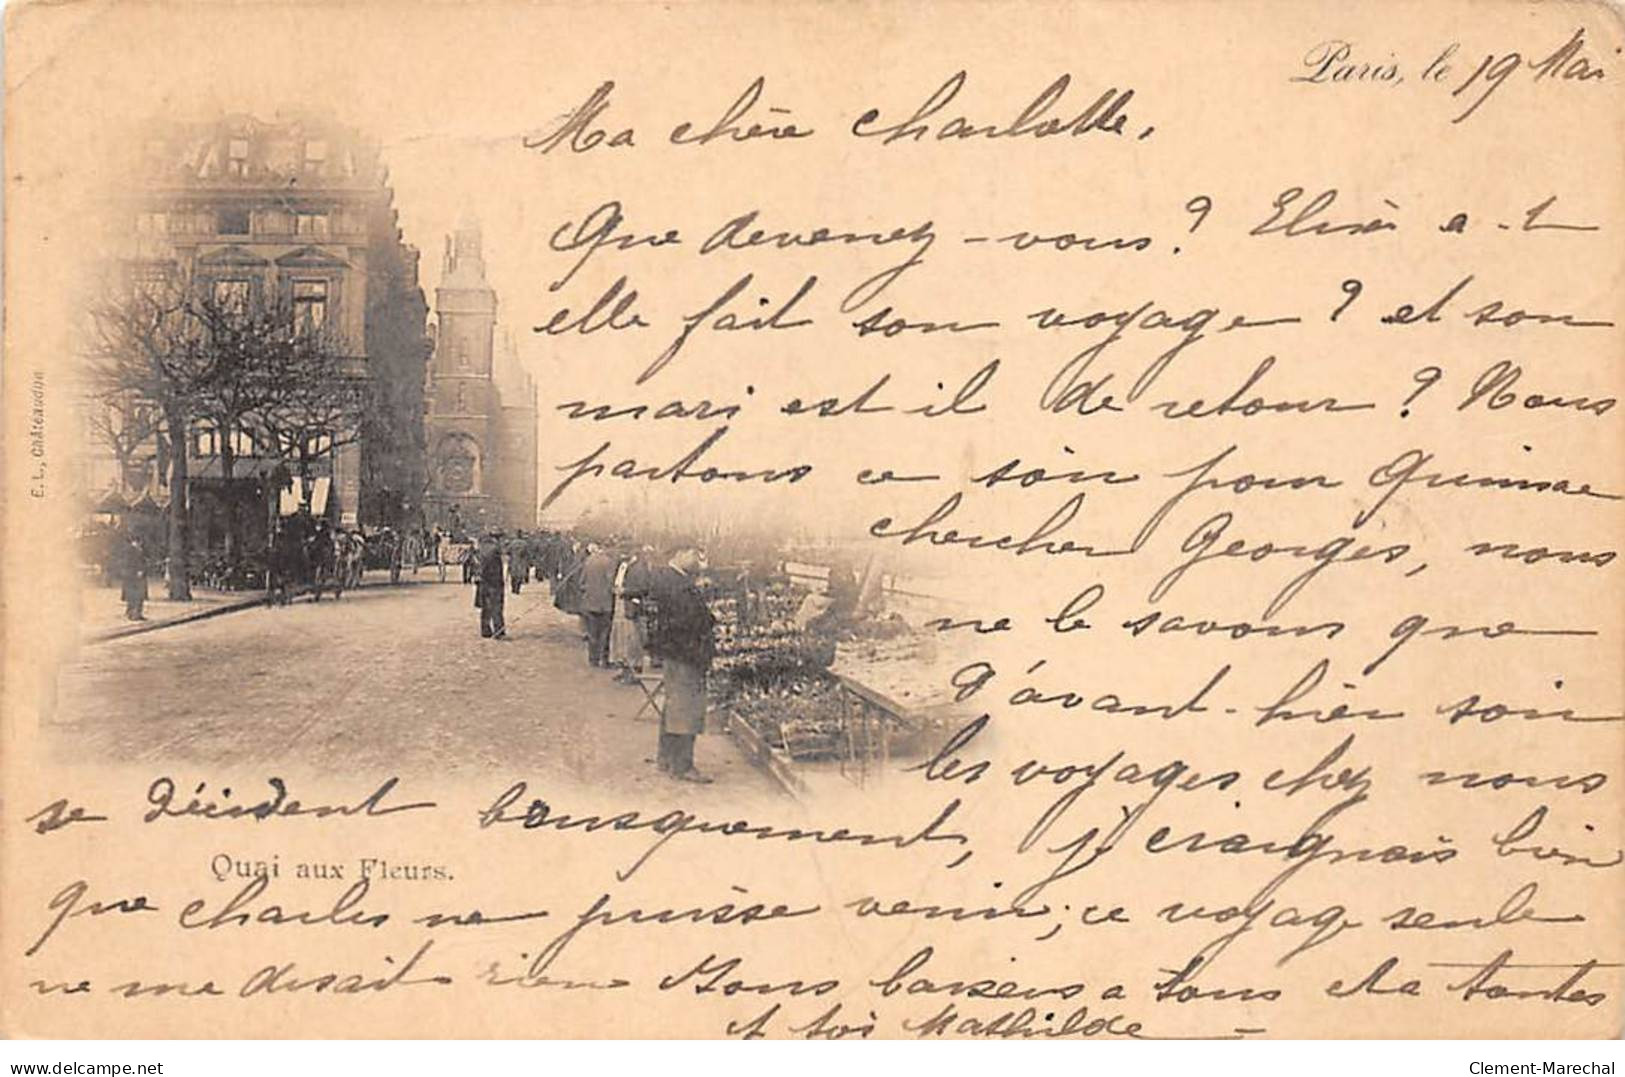 Paris, le 19 Mai
Ma chère Charlotte,
Que devenez-vous ? Elisée a-t
elle fait son voyage ? et son
mari est il de retour ? Nous
partons ce soir pour
chercher Georges, nous
ne le savons que
d'avant-hier soir
les voyages chez nous
se décident brusquement, je craignais bien
que Charles ne puisse venir, ce voyage seule
ne me disait rien Bons baisers a tous et a tantes
et toi Mathilde
Quai aux Fleurs.
E. L., Châteaudun
delcampe.net
Clement-Marechal